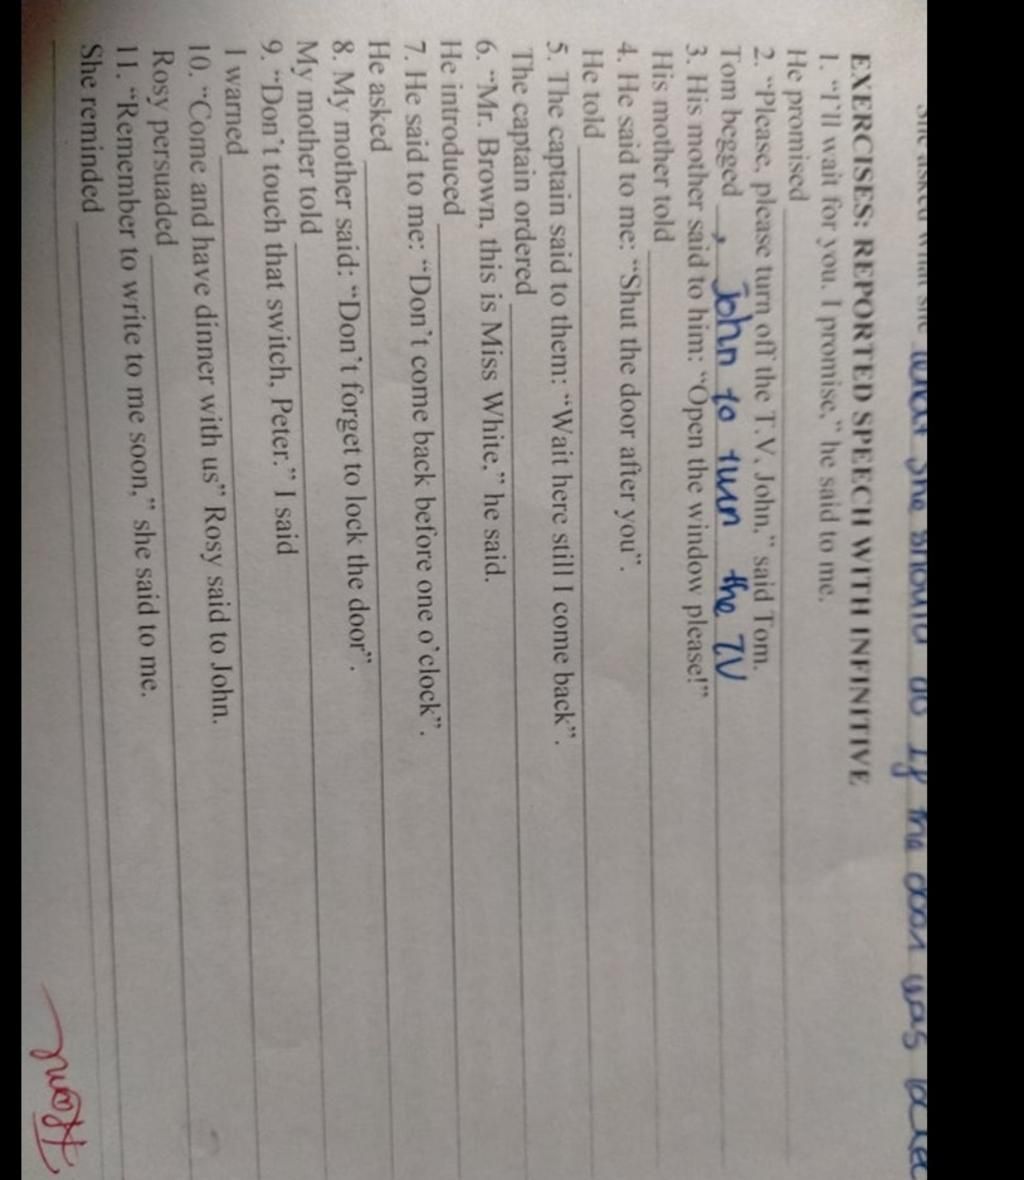 She asked what she what she should do if the door was
EXERCISES: REPORTED SPEECH WITH INFINITIVE
1. “I’ll wait for you. I promise,“ he said to me.
He promised
2. “Please, please turn off the T.V, John,” said Tom.
Tom begged , John to turn the TV
3. His mother said to him: “Open the window please!”
His mother told
4. He said to me: “Shut the door after you”.
He told
5. The captain said to them: “Wait here still I come back”.
The captain ordered
6. “Mr. Brown, this is Miss White,” he said.
He introduced
7. He said to me: “Don’t come back before one o’clock”.
He asked
8. My mother said: “Don’t forget to lock the door”.
My mother told
9. “Don’t touch that switch, Peter.” I said
I warned
10. “Come and have dinner with us” Rosy said to John.
Rosy persuaded
11. “Remember to write to me soon,” she said to me.
She reminded